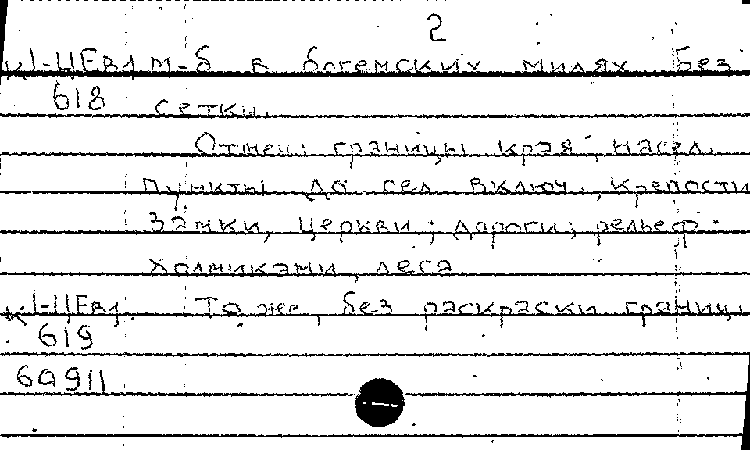 2
к1-ЦЕв1 м-б в богемских милях без
618 сетки.
Отмеч: границы края, насел.
пункты до сел включ., крепости
замки, церкви; дороги; рельеф-
холмиками, леса
к1-ЦЕв1. То же, без раскраски границ.
619
60911